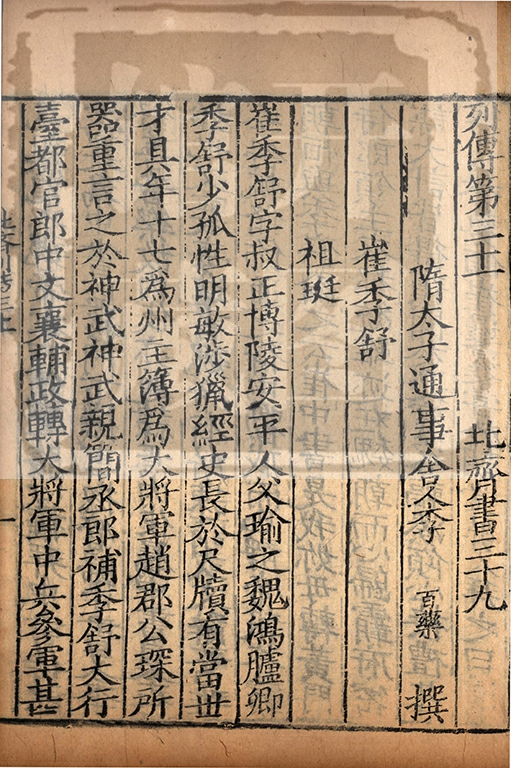 列傳第三十一　北齊書三十九
隋太子通事舍人李　百藥　撰
崔季舒
祖珽
崔季舒字叔正博陵安平人父瑜之魏鴻臚卿
季舒少孤性明敏涉獵經史長於尺牘有當世
才具年十七爲州主簿爲大將軍趙郡公琛所
器重言之於神武神武親簡丞郎補季舒大行
臺都官郎中文襄輔政轉大將軍中兵參軍甚
一